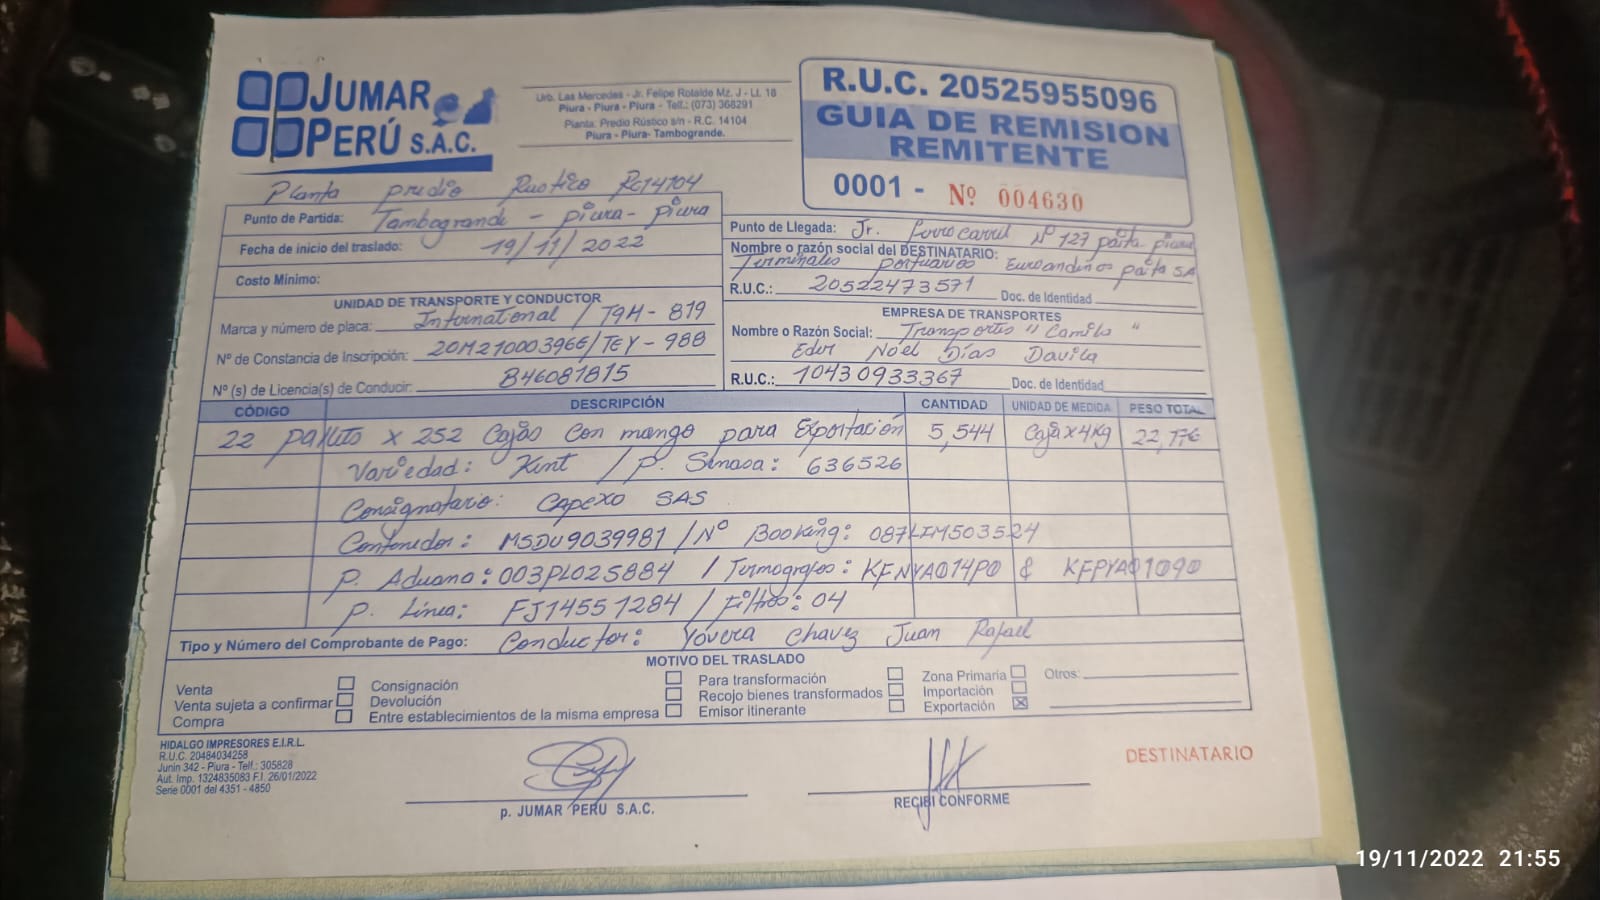 JUMAR PERÚ S.A.C.
Urb. Las Mercedes - Jr. Felipe Rotalde Mz. J - Lt. 18
Piura - Piura - Piura - Telf.: (073) 368291
Planta: Predio Rústico s/n - R.C. 14104
Piura - Piura- Tambogrande.
R.U.C. 20525955096
GUIA DE REMISION
REMITENTE
0001 - Nº 004630
Planta predio Rustico Rc14104
Punto de Partida: Tambogrande - piura - piura
Fecha de inicio del traslado: 19/11/2022
Costo Mínimo:
Punto de Llegada: Jr. Ferrocarril Nº 127 paita piura
Nombre o razón social del DESTINATARIO:
Terminales portuarios Euroandinos paita SA
R.U.C.: 20522473571 Doc. de Identidad
UNIDAD DE TRANSPORTE Y CONDUCTOR
Marca y número de placa: International / T9H - 819
Nº de Constancia de Inscripción: 20M21000396E/TEY - 988
Nº (s) de Licencia(s) de Conducir: B46081815
EMPRESA DE TRANSPORTES
Nombre o Razón Social: Transportes "Camila"
Eder Noel Días Davila
R.U.C.: 10430933367 Doc. de Identidad
CÓDIGO DESCRIPCIÓN CANTIDAD UNIDAD DE MEDIDA PESO TOTAL
22 pallets x 252 Cajas con mango para Exportación 5,544 Caja x 4Kg
Variedad: Kent / p. Senasa: 636526
Consignatario: CAPEXO SAS
Contenedor: MSDU9039981 / Nº Booking: 087LIM503524
P. Aduana: 003PL025884 / Termografos: KFNYA014P0 & KFPYA01090
P. Línea: FJ14551284 / Filtros: 04
Tipo y Número del Comprobante de Pago: Conductor: Yovera Chavez Juan Rafael
MOTIVO DEL TRASLADO
Venta
Venta sujeta a confirmar
Compra
Consignación
Devolución
Entre establecimientos de la misma empresa
Para transformación
Recojo bienes transformados
Emisor itinerante
Zona Primaria
Importación
Exportación X
Otros:
HIDALGO IMPRESORES E.I.R.L.
R.U.C. 20484034258
Junin 342 - Piura - Telf.: 305828
Aut. Imp. 1324835083 F.I. 26/01/2022
Serie 0001 del 4351 - 4850
p. JUMAR PERU S.A.C.
RECIBI CONFORME
DESTINATARIO
19/11/2022 21:55